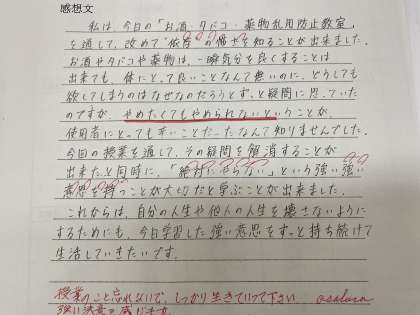 感想文
私は、今日の「お酒・タバコ・薬物乱用防止教室」
を通して、改めて"依存"の怖さを知ることが出来ました。
お酒やタバコや薬物は、一瞬気分を良くすることは
出来ても、体にとって良いことなんて無いのに、どうしても
欲してしまうのはなぜなのだろうとずっと疑問に思っていた
のですが、やめたくてもやめられないということが、
使用者にとっても辛いことだったなんて知りませんでした。
今回の授業を通して、その疑問を解消することが
出来たと同時に、「絶対にやらない」という強い強い
意思を持つことが大切だと学ぶことが出来ました。
これからは、自分の人生や他人の人生を壊さないように
するためにも、今日学習した強い意思をずっと持ち続けて
生活していきたいです。
授業のこと忘れないで、しっかり生きていって下さい
強い決意を感じます。